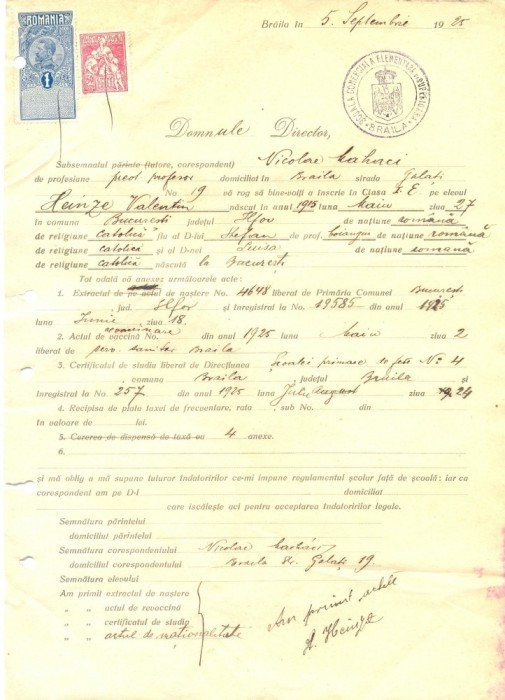 ROMANIA
1
Brăila în 5. Septembrie 1925
ȘCOALA COMERCIALĂ ELEMENTARĂ ȘI SUPERIOARĂ
BRĂILA
Domnule Director,
Subsemnatul părinte (tutore, corespondent) Nicolae
de profesiune preot profesor domiciliat în Braila strada Galați
No. 19 vă rog să bine-voiți a înscrie în Clasa I E, pe elevul
Heinze Valentin născut în anul 1915 luna Maiu ziua 27
în comuna Bucuresti județul Ilfov de națiune română
de religiune catolică fiu al D-lui Stefan de prof. de națiune română
de religiune catolică și al D-nei Luisa de națiune română
de religiune catolică născută la București
Tot odată vă anexez următoarele acte:
1. Extractul de pe actul de naștere No. 4648 liberat de Primăria Comunei Bucuresti
jud. Ilfov și înregistrat la No. 19585 din anul 1925
luna Iunie ziua 18.
2. Actul de vaccină No. din anul 1925 luna Maiu ziua 2
liberat de serv. sanitar Braila
3. Certificatul de studii liberat de Direcțiunea Școalei primare de fete No 4
comuna Braila județul Brăila și
înregistrat la No. 257 din anul 1925 luna Iuliu August ziua 24
4. Recipisa de plata taxei de frecuentare, rata sub No. din
în valoare de lei.
5. Cererea de dispensă de taxă cu 4 anexe.
6.
și mă oblig a mă supune tuturor îndatoririlor ce-mi impune regulamentul școlar față de școală: iar ca
corespondent am pe D-l domiciliat
care iscălește aci pentru acceptarea îndatoririlor legale.
Semnătura părintelui
domiciliul părintelui
Semnătura corespondentului Nicolae
domiciliul corespondentului Braila Str. Galați 19
Semnătura elevului
Am primit extractul de naștere
„ „ actul de revaccină
„ „ certificatul de studiu
„ „ actul de naționalitate
Am primit actele
Heinze